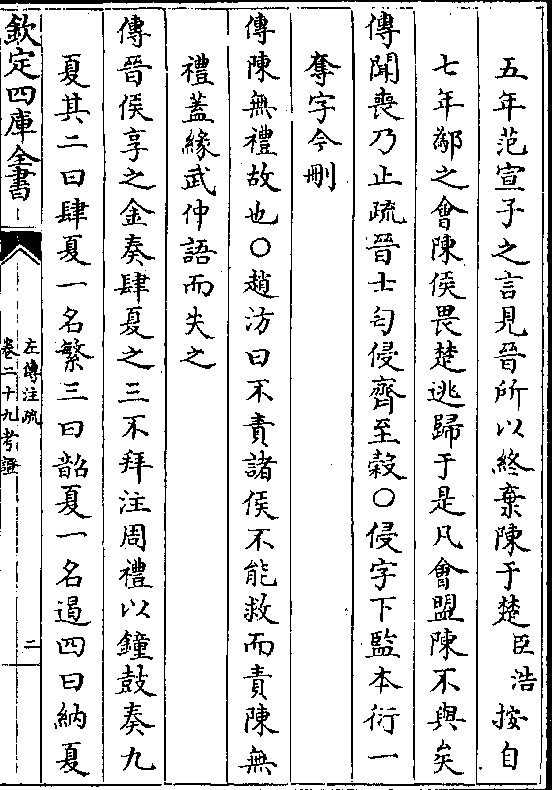 五年范宣子之言見晉所以終棄陳于楚臣浩按自
七年鄬之會陳侯畏楚逃歸于是凡會盟陳不與矣
傳聞喪乃止疏晉士匄侵齊至穀○侵字下監本衍一
奪字今刪
傳陳無禮故也○趙汸曰不責諸侯不能救而責陳無
禮蓋緣武仲語而失之
傳晉侯享之金奏肆夏之三不拜注周禮以鐘鼓奏九
夏其二曰肆夏一名繁三曰韶夏一名遏四曰納夏
欽定四庫全書
左傳注疏
卷二十九考證
二